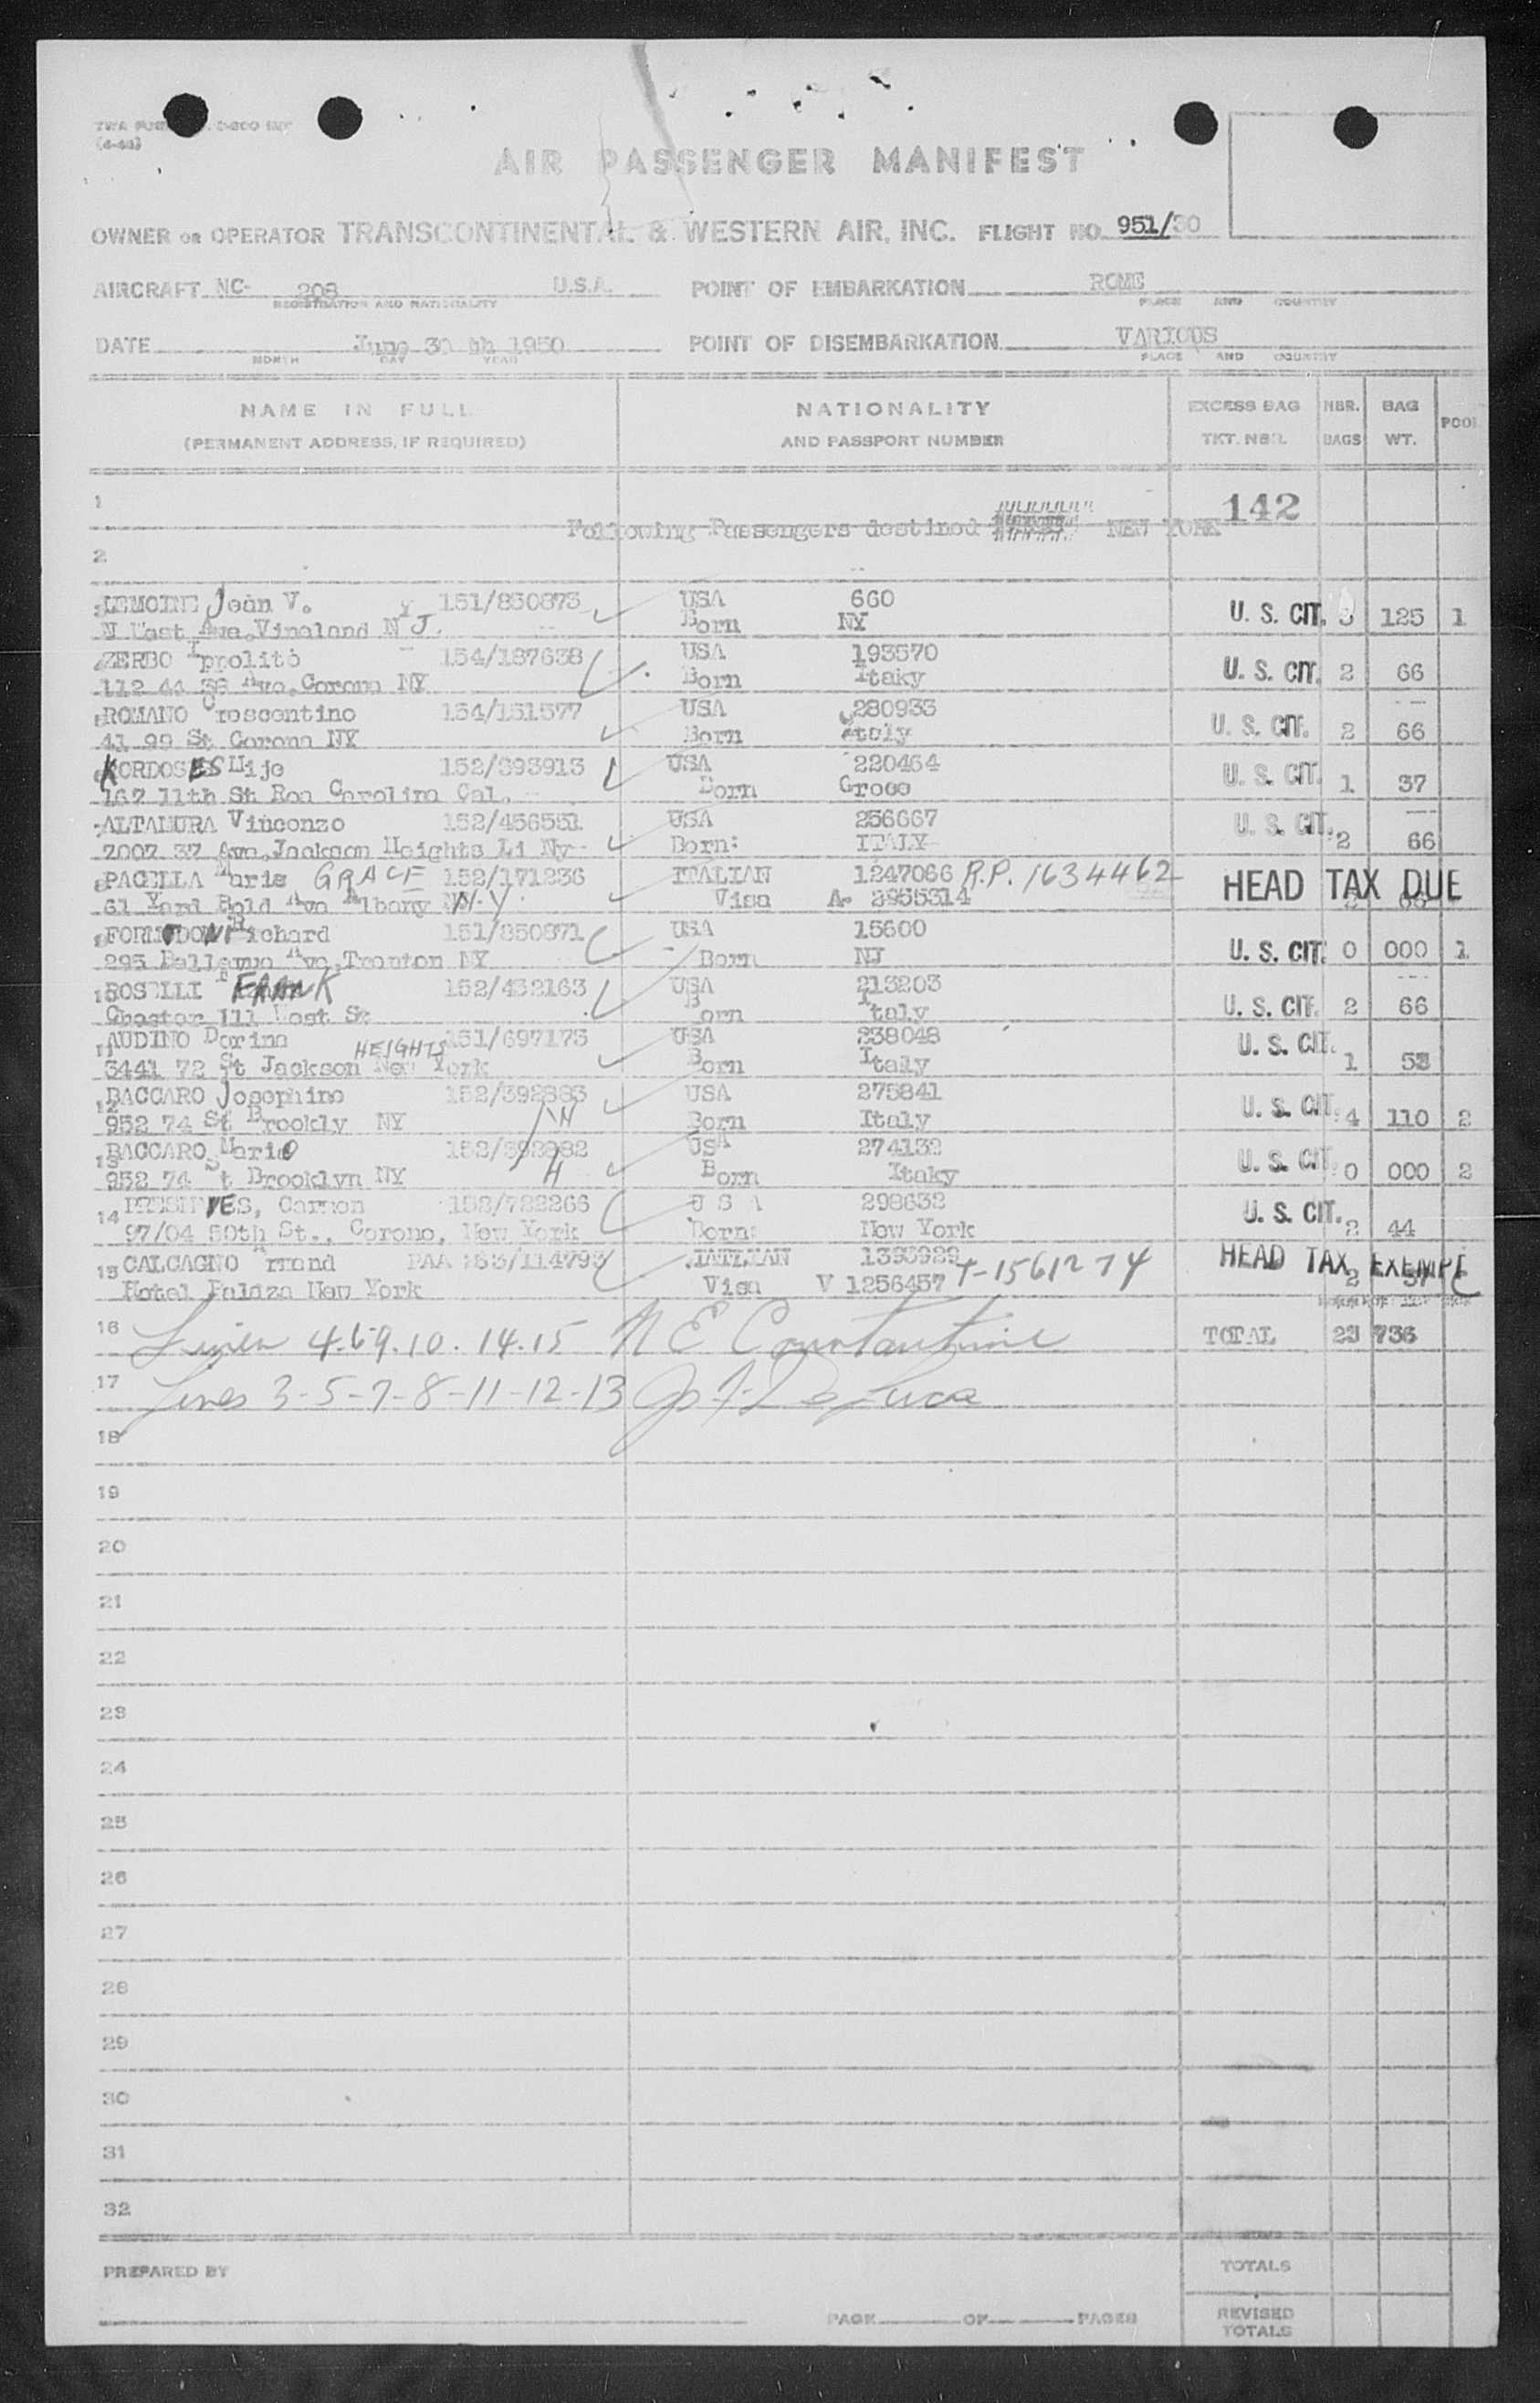 (4-48)
AIR PASSENGER MANIFEST
OWNER OR OPERATOR TRANSCONTINENTAL & WESTERN AIR, INC. FLIGHT NO. 951/30
AIRCRAFT NC- 208 U.S.A. POINT OF EMBARKATION ROME
REGISTRATION AND NATIONALITY PLACE AND COUNTRY
DATE June 30 th 1950 POINT OF DISEMBARKATION VARIOUS
MONTH DAY YEAR PLACE AND COUNTRY
NAME IN FULL NATIONALITY EXCESS BAG NBR. BAG POOL
(PERMANENT ADDRESS, IF REQUIRED) AND PASSPORT NUMBER TKT. NBR. BAGS WT.
1 142
Following Passengers destined NEW YORK
2
3 LEMOINE Jean V. 151/850873 USA 660 U. S. CIT. 3 125 1
N East Ave. Vineland N J. Born NY
ZERBO Ippolito 154/187638 USA 193570 U. S. CIT. 2 66
112 44 38 Ave. Corona NY Born Itaky
ROMANO Crescentino 154/151577 USA 280933 U. S. CIT. 2 66
41 99 St Corona NY Born Italy
KORDOSES Mije 152/393913 USA 220464 U. S. CIT. 1 37
167 11th St Roa Carolina Cal. Born Grece
ALTAMURA Vincenzo 152/456551 USA 256667 U. S. CIT. 2 66
7007 37 Ave. Jackson Heights Li Ny Born: ITALY
8 PACELLA Maria GRACE 152/171236 ITALIAN 1247066 R.P. 1634462 HEAD TAX DUE 2 66
61 Yard Bold Ave Albany N.Y. Visa A- 2955314
Richard 151/850871 USA 15600 U. S. CIT. 0 000 1
295 Bellevue Ave, Trenton NY Born NJ
10 ROSELLI FRANK 152/432163 USA 213203 U. S. CIT. 2 66
Chester 111 West St Born Italy
11 AUDINO Dorina 151/697175 USA 238048 U. S. CIT. 1 53
3441 72 St Jackson HEIGHTS New York Born Italy
12 BACCARO Josephine 152/392883 USA 275841 U. S. CIT. 4 110 2
952 74 St Brookly NY Born Italy
13 BACCARO Mario 152/392882 USA 274132 U. S. CIT. 0 000 2
952 74 St Brooklyn NY Born Itaky
14 Carmen 152/722266 U S A 298632 U. S. CIT. 2 44
97/04 50th St., Corono, New York Born: New York
15 CALCAGNO Armand PAA 183/114793 1-1561274 HEAD TAX EXEMPT 2
Hotel Palaza New York Visa V 1256457
16 Lines 4.6.9.10.14.15 N E Constantine TOTAL 23 736
17 Lines 3-5-7-8-11-12-13 De Luca
18
19
20
21
22
23
24
25
26
27
28
29
30
31
32
PREPARED BY TOTALS
PAGE OF PAGES REVISED TOTALS